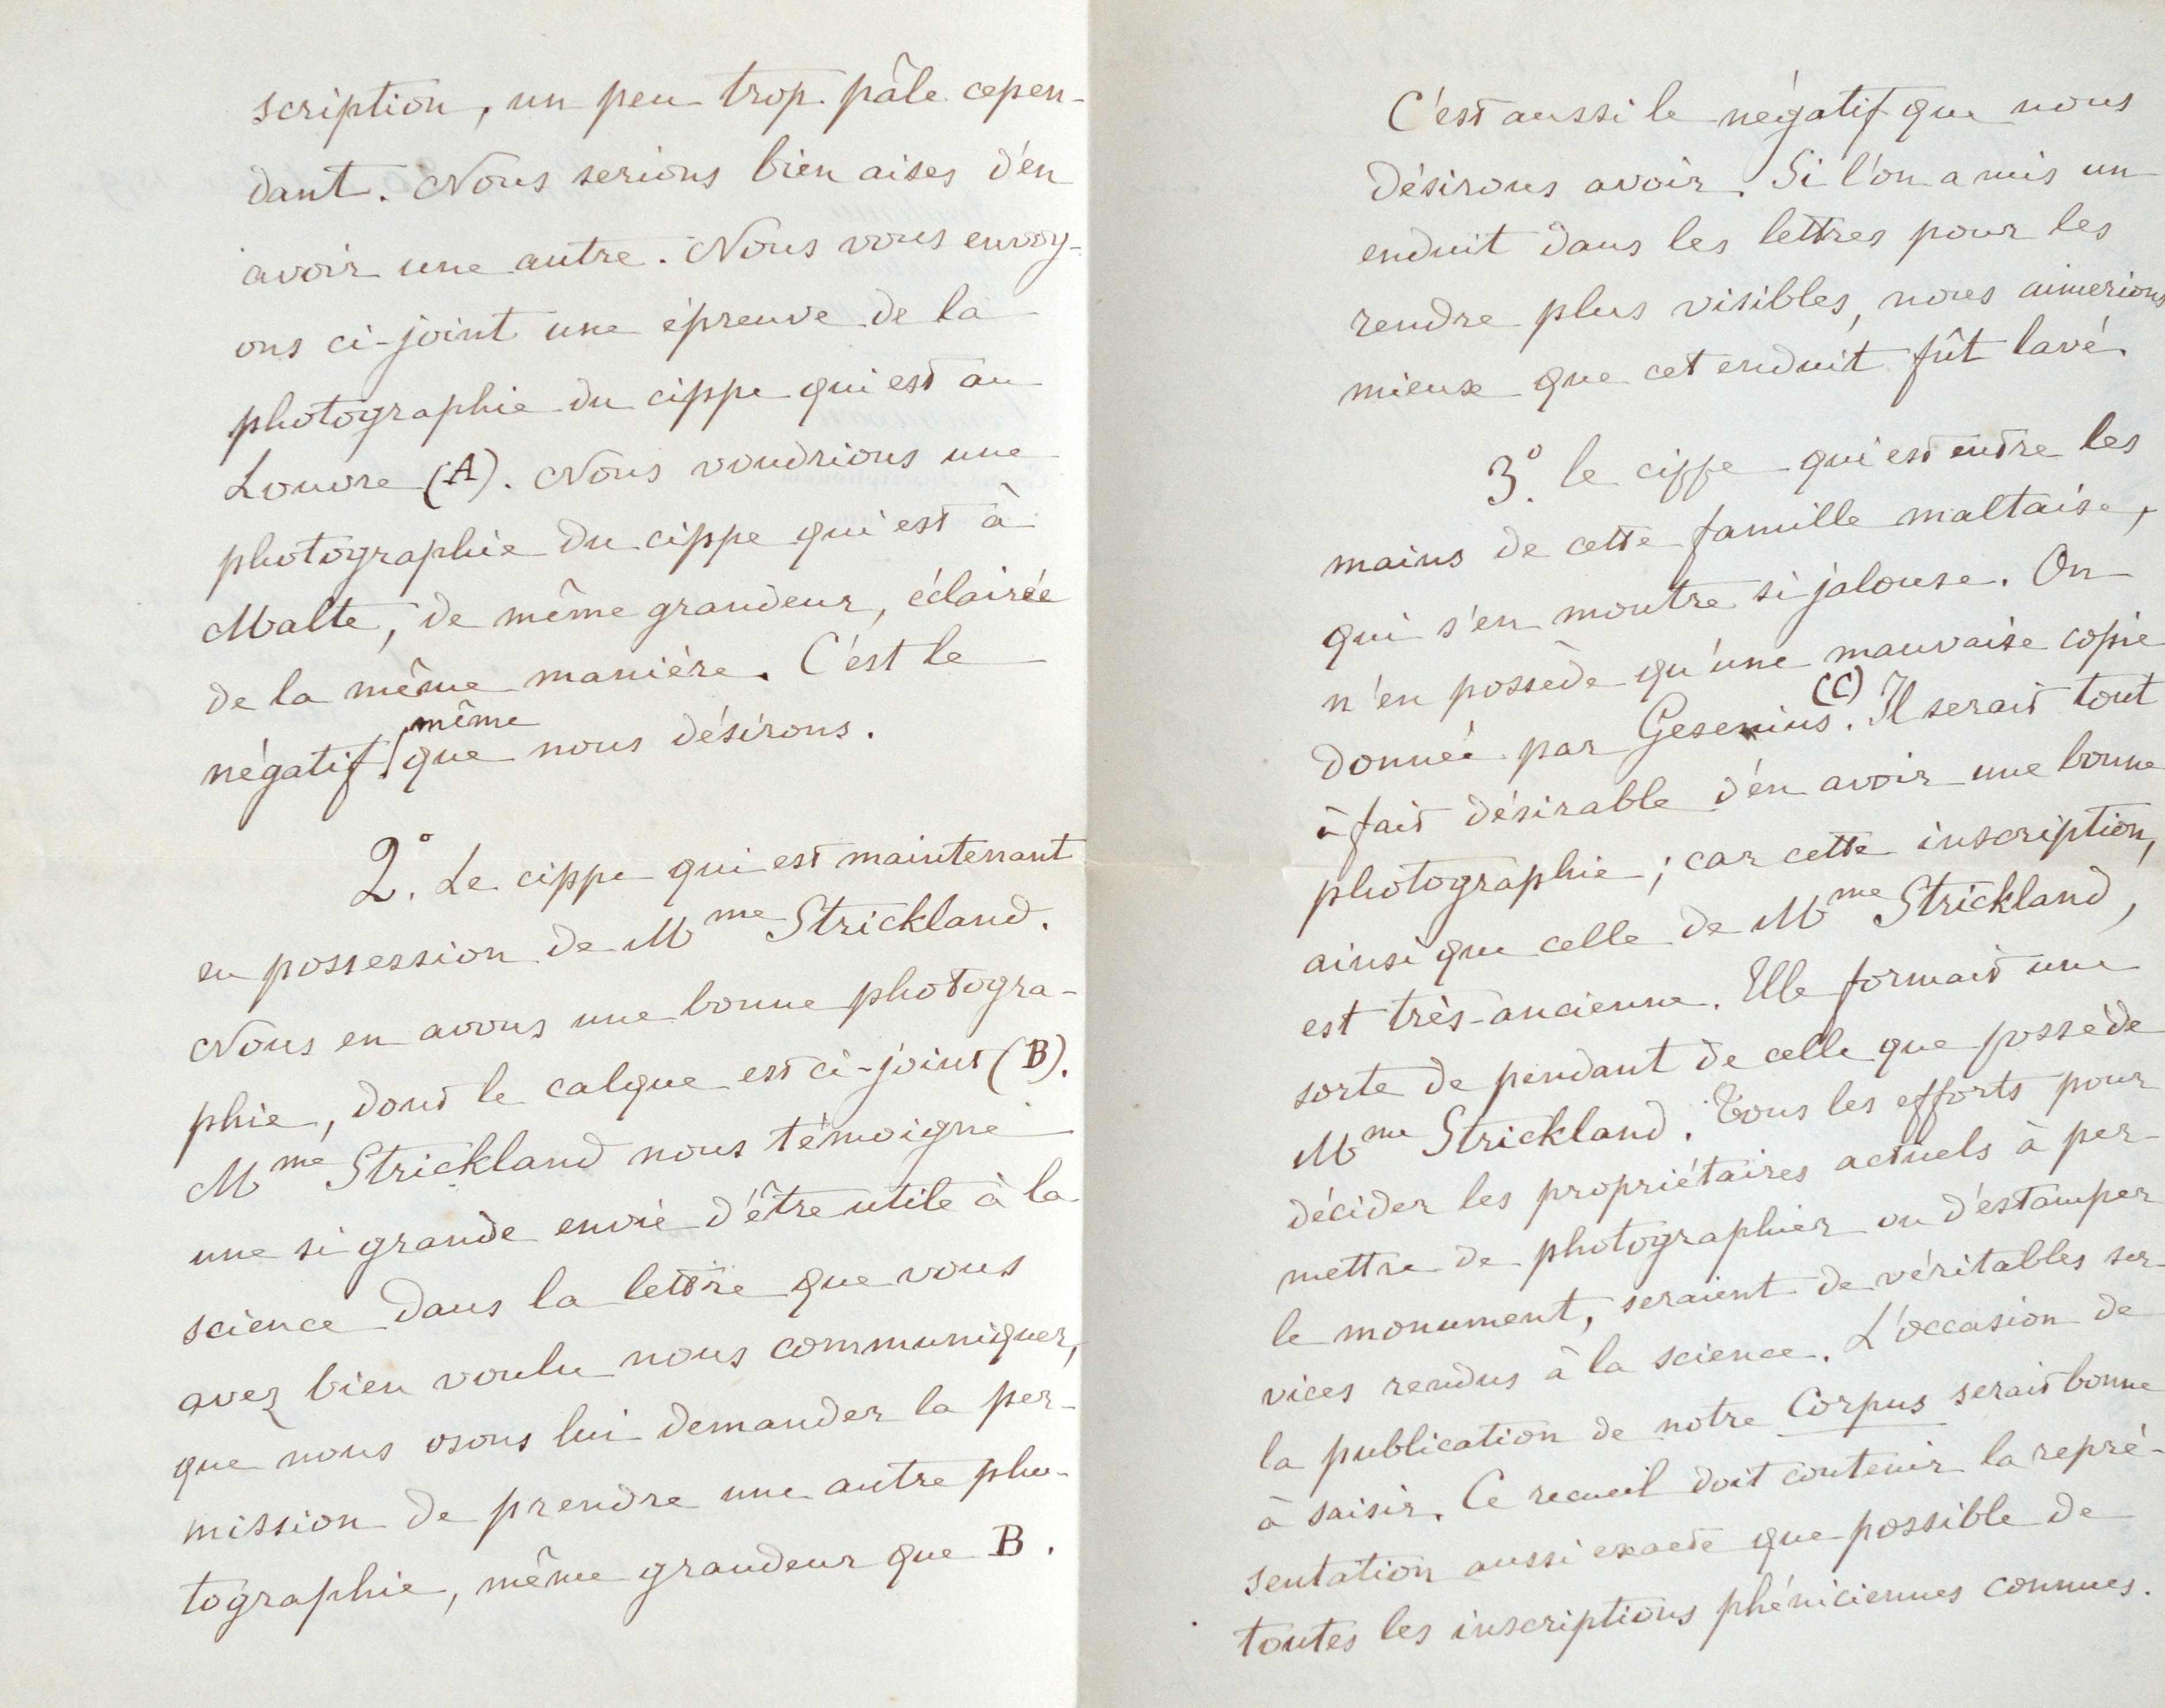 scription, un peu trop pâle cepen-
dant. Nous serions bien aises d'en
avoir une autre. Nous vous envoy-
ons ci-joint une épreuve de la
photographie du cippe qui est au
Louvre (A). Nous voudrions une
photographie du cippe qui est à
Malte, de même grandeur, éclairée
de la même manière. C'est le
même
négatif que nous désirons.
2º. Le cippe qui est maintenant
en possession de Mme Strickland.
Nous en avons une bonne photogra-
phie, dont le calque est ci-joint (B).
Mme Strickland nous témoigne
une si grande envie d'être utile à la
science dans la lettre que vous
avez bien voulu nous communiquer,
que nous osons lui demander la per-
mission de prendre une autre pho-
tographie, même grandeur que B.
C'est aussi le négatif que nous
désirons avoir. Si l'on a mis un
enduit dans les lettres pour les
rendre plus visibles, nous aimerions
mieux que cet enduit fût lavé.
3º. le cippe qui est entre les
mains de cette famille maltaise,
qui s'en montre si jalouse. On
n'en possède qu'une mauvaise copie
(C)
donnée par Gesenius. Il serait tout
à fait désirable d'en avoir une bonne
photographie; car cette inscription,
ainsi que celle de Mme Strickland,
est très-ancienne. Elle formait une
sorte de pendant de celle que possède
Mme Strickland. Tous les efforts pour
décider les propriétaires actuels à per-
mettre de photographier ou d'estamper
le monument, seraient de véritables ser-
vices rendus à la science. L'occasion de
la publication de notre Corpus serait bonne
à saisir. Ce recueil doit contenir la repré-
sentation aussi exacte que possible de
toutes les inscriptions phéniciennes connues.